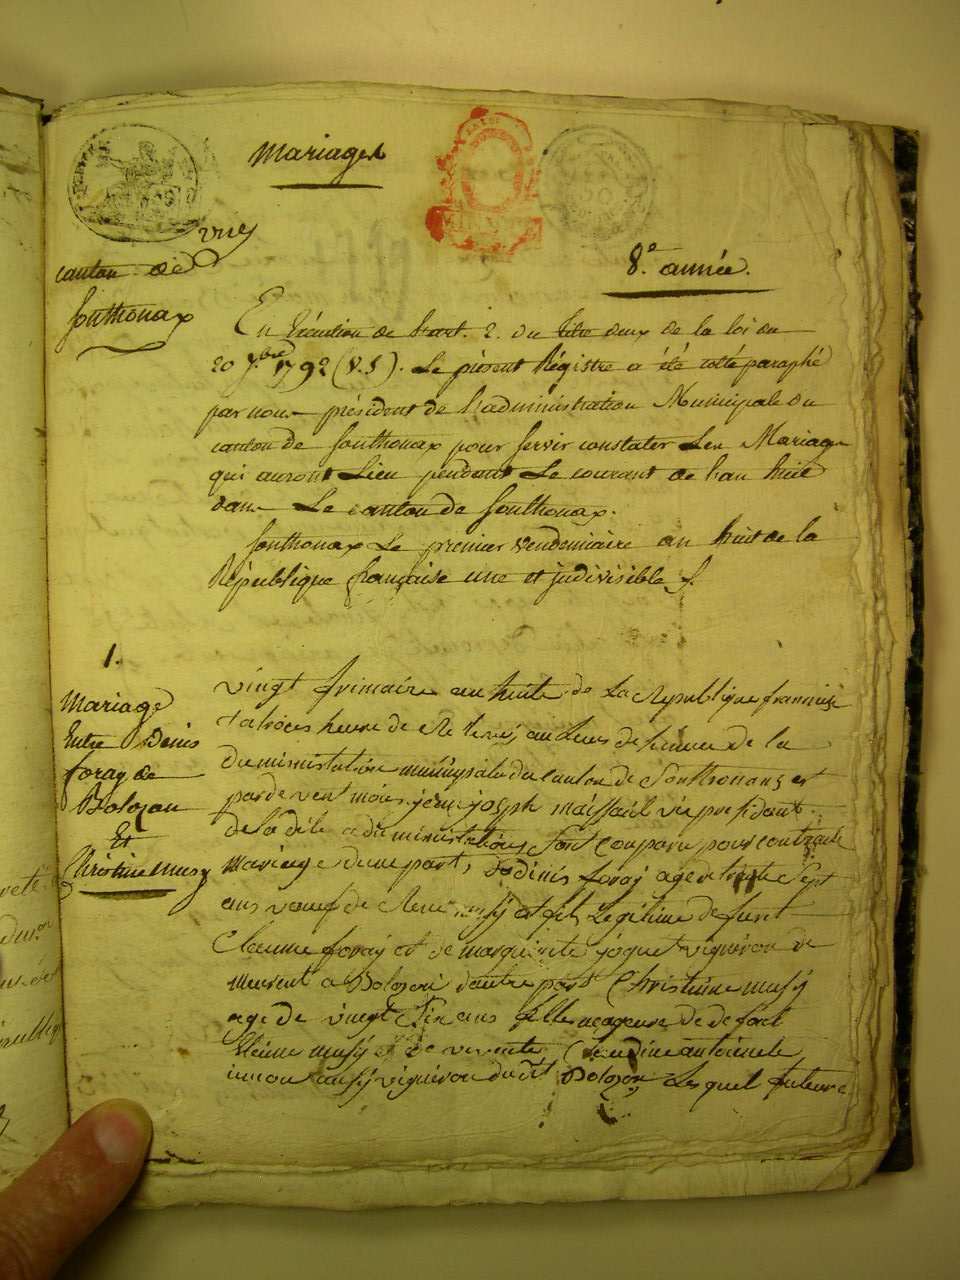 Mariages
canton de
Sonthonax
8.e année.
En Exécution de Lart. 2. du titre deux de la loi du
20 7.bre 1792 (V.S). Le présent Régistre a été cotté paraphé
par nous président de l'administration Municipale du
canton de Sonthonax pour servir constater Les Mariages
qui auront Lieu pendant Le courant de l'an huit
dans Le canton de Sonthonax.
Sonthonax Le premier vendemiaire an huit de la
République française une et indivisible
1.
Mariage
Entre Denis
foray de
Bolozon
Et
Christine musy
vingt frimaire an huite de La Republique francaise
heure de
duministration municipale du canton de Sonthonax est
par de vent moi jean joseph maissiat vice president
de la dite administration sont conparu pour contracte
Mariage dune part, denis foray age de trente sept
ans veuf de Rene musy et fils Legitime de funt
Claenne foray et de marguerite joguet vigneron de
meurent a Bolozon dautre part Christinne musy
age de vingt six ans fille de defont
Etienne musy et de vivente Claudine antoinete
ausy vigneron du dt Bolozon Lesquel future